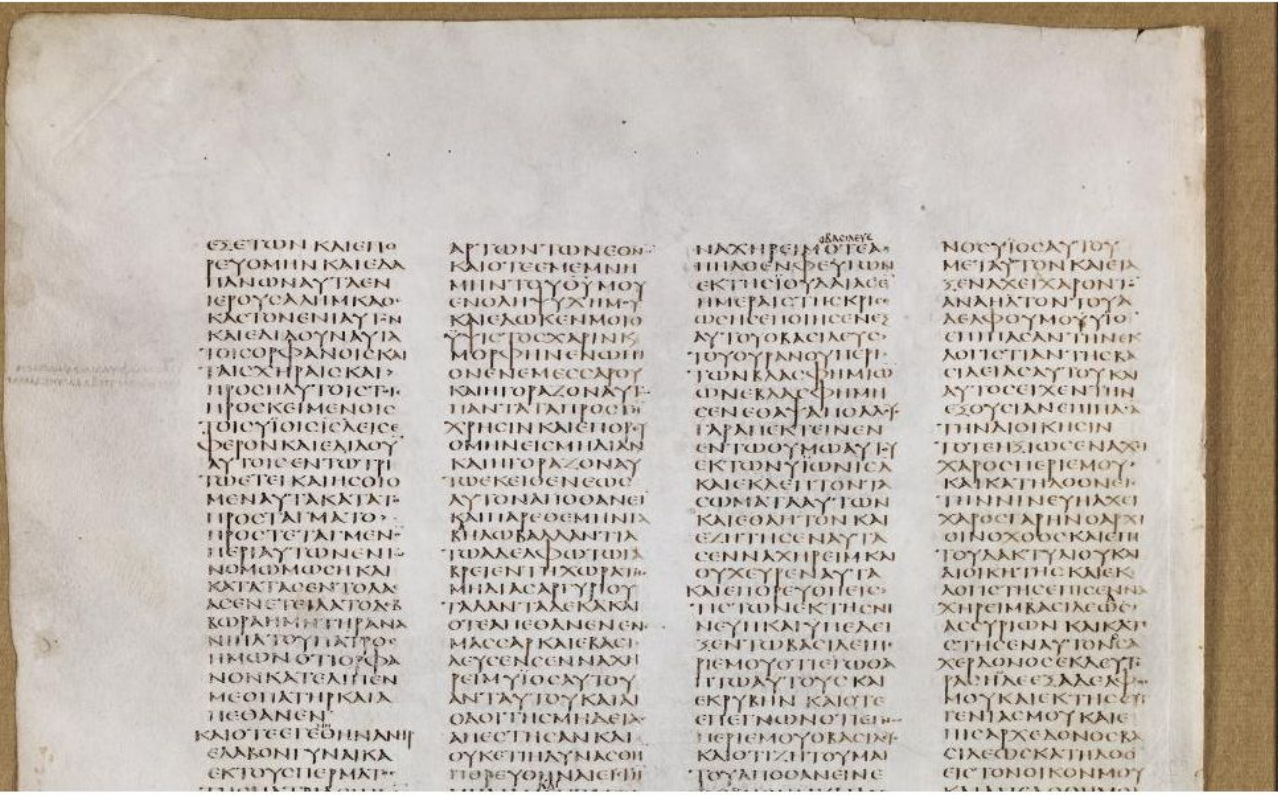 ΕΞΕΤΩΝ ΚΑΙΕΠΟ
ΡΕΥΟΜΗΝ ΚΑΙΕΔΑ
ΠΑΝΩΝΑΥΤΑΕΝ
ΙΕΡΟΥΣΑΛΗΜΚΑΘΕ
ΚΑΣΤΟΝΕΝΙΑΥΤΟΝ
ΚΑΙΕΔΙΔΟΥΝΑΥΤΑ
ΤΟΙΣΟΡΦΑΝΟΙΣΚΑΙ
ΤΑΙΣΧΗΡΑΙΣΚΑΙ
ΠΡΟΣΗΛΥΤΟΙΣΤΟΙΣ
ΠΡΟΣΚΕΙΜΕΝΟΙΣ
ΤΟΙΣΥΙΟΙΣΙΣΛΕΙΣΕ
ΦΕΡΟΝΚΑΙΕΔΙΔΟΥ
ΑΥΤΟΙΣΕΝΤΩΤΡΙ
ΤΩΕΤΕΙΚΑΙΗΣΘΙΟ
ΜΕΝΑΥΤΑΚΑΤΑΤΟ
ΠΡΟΣΤΑΓΜΑΤΟ
ΠΡΟΣΤΕΤΑΓΜΕΝΟ
ΠΕΡΙΑΥΤΩΝΕΝΤΩ
ΝΟΜΩΜΩΣΗ ΚΑΙ
ΚΑΤΑΤΑΣΕΝΤΟΛΑΣ
ΑΣΕΝΕΤΕΙΛΑΤΟΔΕΒ
ΒΩΡΑΗΜΗΤΗΡΑΝΑ
ΝΙΗΛΤΟΥΠΑΤΡΟΣ
ΗΜΩΝΟΤΙΟΡΦΑ
ΝΟΝΚΑΤΕΛΙΠΕΝ
ΜΕΟΠΑΤΗΡΚΑΙΑ
ΠΕΘΑΝΕΝ
ΚΑΙΟΤΕΕΓΕΝΗΘΗΝΑΝΗΡ
ΕΛΑΒΟΝΓΥΝΑΙΚΑ
ΕΚΤΟΥΣΠΕΡΜΑΤΟΣ
ΑΡΤΩΝΤΩΝΕΘΝΩΝ
ΚΑΙΟΤΕΕΜΕΜΝΗ
ΜΗΝΤΟΥΘΥΜΟΥ
ΕΝΟΛΗΨΥΧΗΜΟΥ
ΚΑΙΕΔΩΚΕΝΜΟΙΟ
ΥΨΙΣΤΟΣΧΑΡΙΝΚΑΙ
ΜΟΡΦΗΝΕΝΩΠΙ
ΟΝΕΝΕΜΕΣΣΑΡΟΥ
ΚΑΙΗΓΟΡΑΖΟΝΑΥΤΩ
ΠΑΝΤΑΤΑΠΡΟΣΤΗ
ΧΡΗΣΙΝΚΑΙΕΠΟΡΕΥ
ΟΜΗΝΕΙΣΜΗΔΙΑΝ
ΚΑΙΗΓΟΡΑΖΟΝΑΥ
ΤΩΕΚΕΙΘΕΝΕΩΣ
ΑΥΤΟΝΑΠΟΘΑΝΕΙ
ΚΑΙΠΑΡΕΘΕΜΗΝΓΑ
ΒΗΛΩΒΑΛΛΑΝΤΙΑ
ΤΩΑΔΕΛΦΩΤΩΓΑ
ΒΡΕΙΕΝΤΗΧΩΡΑΤΗΣ
ΜΗΔΙΑΣΑΡΓΥΡΙΟΥ
ΤΑΛΑΝΤΑΔΕΚΑΚΑΙ
ΟΤΕΑΠΕΘΑΝΕΝΕΝΕ
ΜΑΣΣΑΡΚΑΙΕΒΑΣΙ
ΛΕΥΣΕΝΣΕΝΝΑΧΗ
ΡΕΙΜΥΙΟΣΑΥΤΟΥ
ΑΝΤΑΥΤΟΥΚΑΙΑΙ
ΟΔΟΙΤΗΣΜΗΔΕΙΑΣ
ΑΠΕΣΤΗΣΑΝΚΑΙ
ΟΥΚΕΤΙΗΔΥΝΑΣΘΗ
ΠΟΡΕΥΘΗΝΑΙΕΙΣΤΗ
ΟΒΑΣΙΛΕΥΣ
ΝΑΧΗΡΕΙΜΟΤΕΑΠ
ΗΛΘΕΝΦΕΥΓΩΝ
ΕΚΤΗΣΙΟΥΔΑΙΑΣΕ
ΗΜΕΡΑΙΣΤΗΣΚΡΙΣΕ
ΩΣΗΣΕΠΟΙΗΣΕΝΕΞ
ΑΥΤΟΥΟΒΑΣΙΛΕΥΣ
ΤΟΥΟΥΡΑΝΟΥΠΕΡΙ
ΤΩΝΒΛΑΣΦΗΜΙΩ
ΩΝΕΒΛΑΣΦΗΜΗ
ΣΕΝΕΘΑΨΑΠΟΛΛΟΥΣ
ΓΑΡΑΠΕΚΤΕΙΝΕΝ
ΕΝΤΩΘΥΜΩΑΥΤΟΥ
ΕΚΤΩΝΥΙΩΝΙΣΛ
ΚΑΙΕΚΛΕΠΤΟΝΤΑ
ΣΩΜΑΤΑΑΥΤΩΝ
ΚΑΙΕΘΑΠΤΟΝ ΚΑΙ
ΕΖΗΤΗΣΕΝΑΥΤΑ
ΣΕΝΝΑΧΗΡΕΙΜΚΑΙ
ΟΥΧΕΥΡΕΝΑΥΤΑ
ΚΑΙΕΠΟΡΕΥΘΗΕΙΣ
ΤΙΣΤΩΝΕΚΤΗΣΝΙ
ΝΕΥΗΚΑΙΥΠΕΔΕΙ
ΞΕΝΤΩΒΑΣΙΛΕΙΠΕ
ΡΙΕΜΟΥΟΤΙΕΓΩΘΑ
ΠΤΩΑΥΤΟΥΣΚΑΙ
ΕΚΡΥΒΗΝ ΚΑΙΟΤΕ
ΕΠΕΓΝΩΝΟΤΙΕΓΝΩ
ΠΕΡΙΕΜΟΥΟΒΑΣΙΛΕΥΣ
ΚΑΙΟΤΙΖΗΤΟΥΜΑΙ
ΤΟΥΑΠΟΘΑΝΕΙΝΕ
ΝΟΣΥΙΟΣΑΥΤΟΥ
ΜΕΤΑΥΤΟΝΚΑΙΕΤΑ
ΞΕΝΑΧΕΙΧΑΡΟΝΤΟ
ΑΝΑΗΛΤΟΝΤΟΥΑ
ΔΕΛΦΟΥΜΟΥΥΙΟ
ΕΠΙΠΑΣΑΝΤΗΝΕΚ
ΛΟΓΙΣΤΙΑΝΤΗΣΒΑ
ΣΙΛΕΙΑΣΑΥΤΟΥΚΑΙ
ΑΥΤΟΣΕΙΧΕΝΤΗΝ
ΕΞΟΥΣΙΑΝΕΠΙΠΑΣΑ
ΤΗΝΔΙΟΙΚΗΣΙΝ
ΤΟΤΕΗΞΙΩΣΕΝΑΧΕΙ
ΧΑΡΟΣΠΕΡΙΕΜΟΥ
ΚΑΙΚΑΤΗΛΘΟΝΕΙΣ
ΤΗΝΝΙΝΕΥΗΑΧΕΙ
ΧΑΡΟΣΓΑΡΗΝΟΑΡΧΙ
ΟΙΝΟΧΟΟΣΚΑΙΕΠΙ
ΤΟΥΔΑΚΤΥΛΙΟΥΚΑΙ
ΔΙΟΙΚΗΤΗΣΚΑΙΕΚ
ΛΟΓΙΣΤΗΣΕΠΙΣΕΝΝΑ
ΧΗΡΕΙΜΒΑΣΙΛΕΩΣ
ΑΣΣΥΡΙΩΝΚΑΙΚΑΤΕ
ΣΤΗΣΕΝΑΥΤΟΝΣΑ
ΧΕΡΔΟΝΟΣΕΚΔΕΥΤΕ
ΡΑΣΗΔΕΕΞΑΔΕΛΦΟΣ
ΜΟΥΚΑΙΕΚΤΗΣΣΥΓ
ΓΕΝΙΑΣΜΟΥΚΑΙΕ
ΠΙΣΑΡΧΕΔΟΝΟΣΒΑ
ΣΙΛΕΩΣΚΑΤΗΛΘΟ
ΕΙΣΤΟΝΟΙΚΟΝΜΟΥ